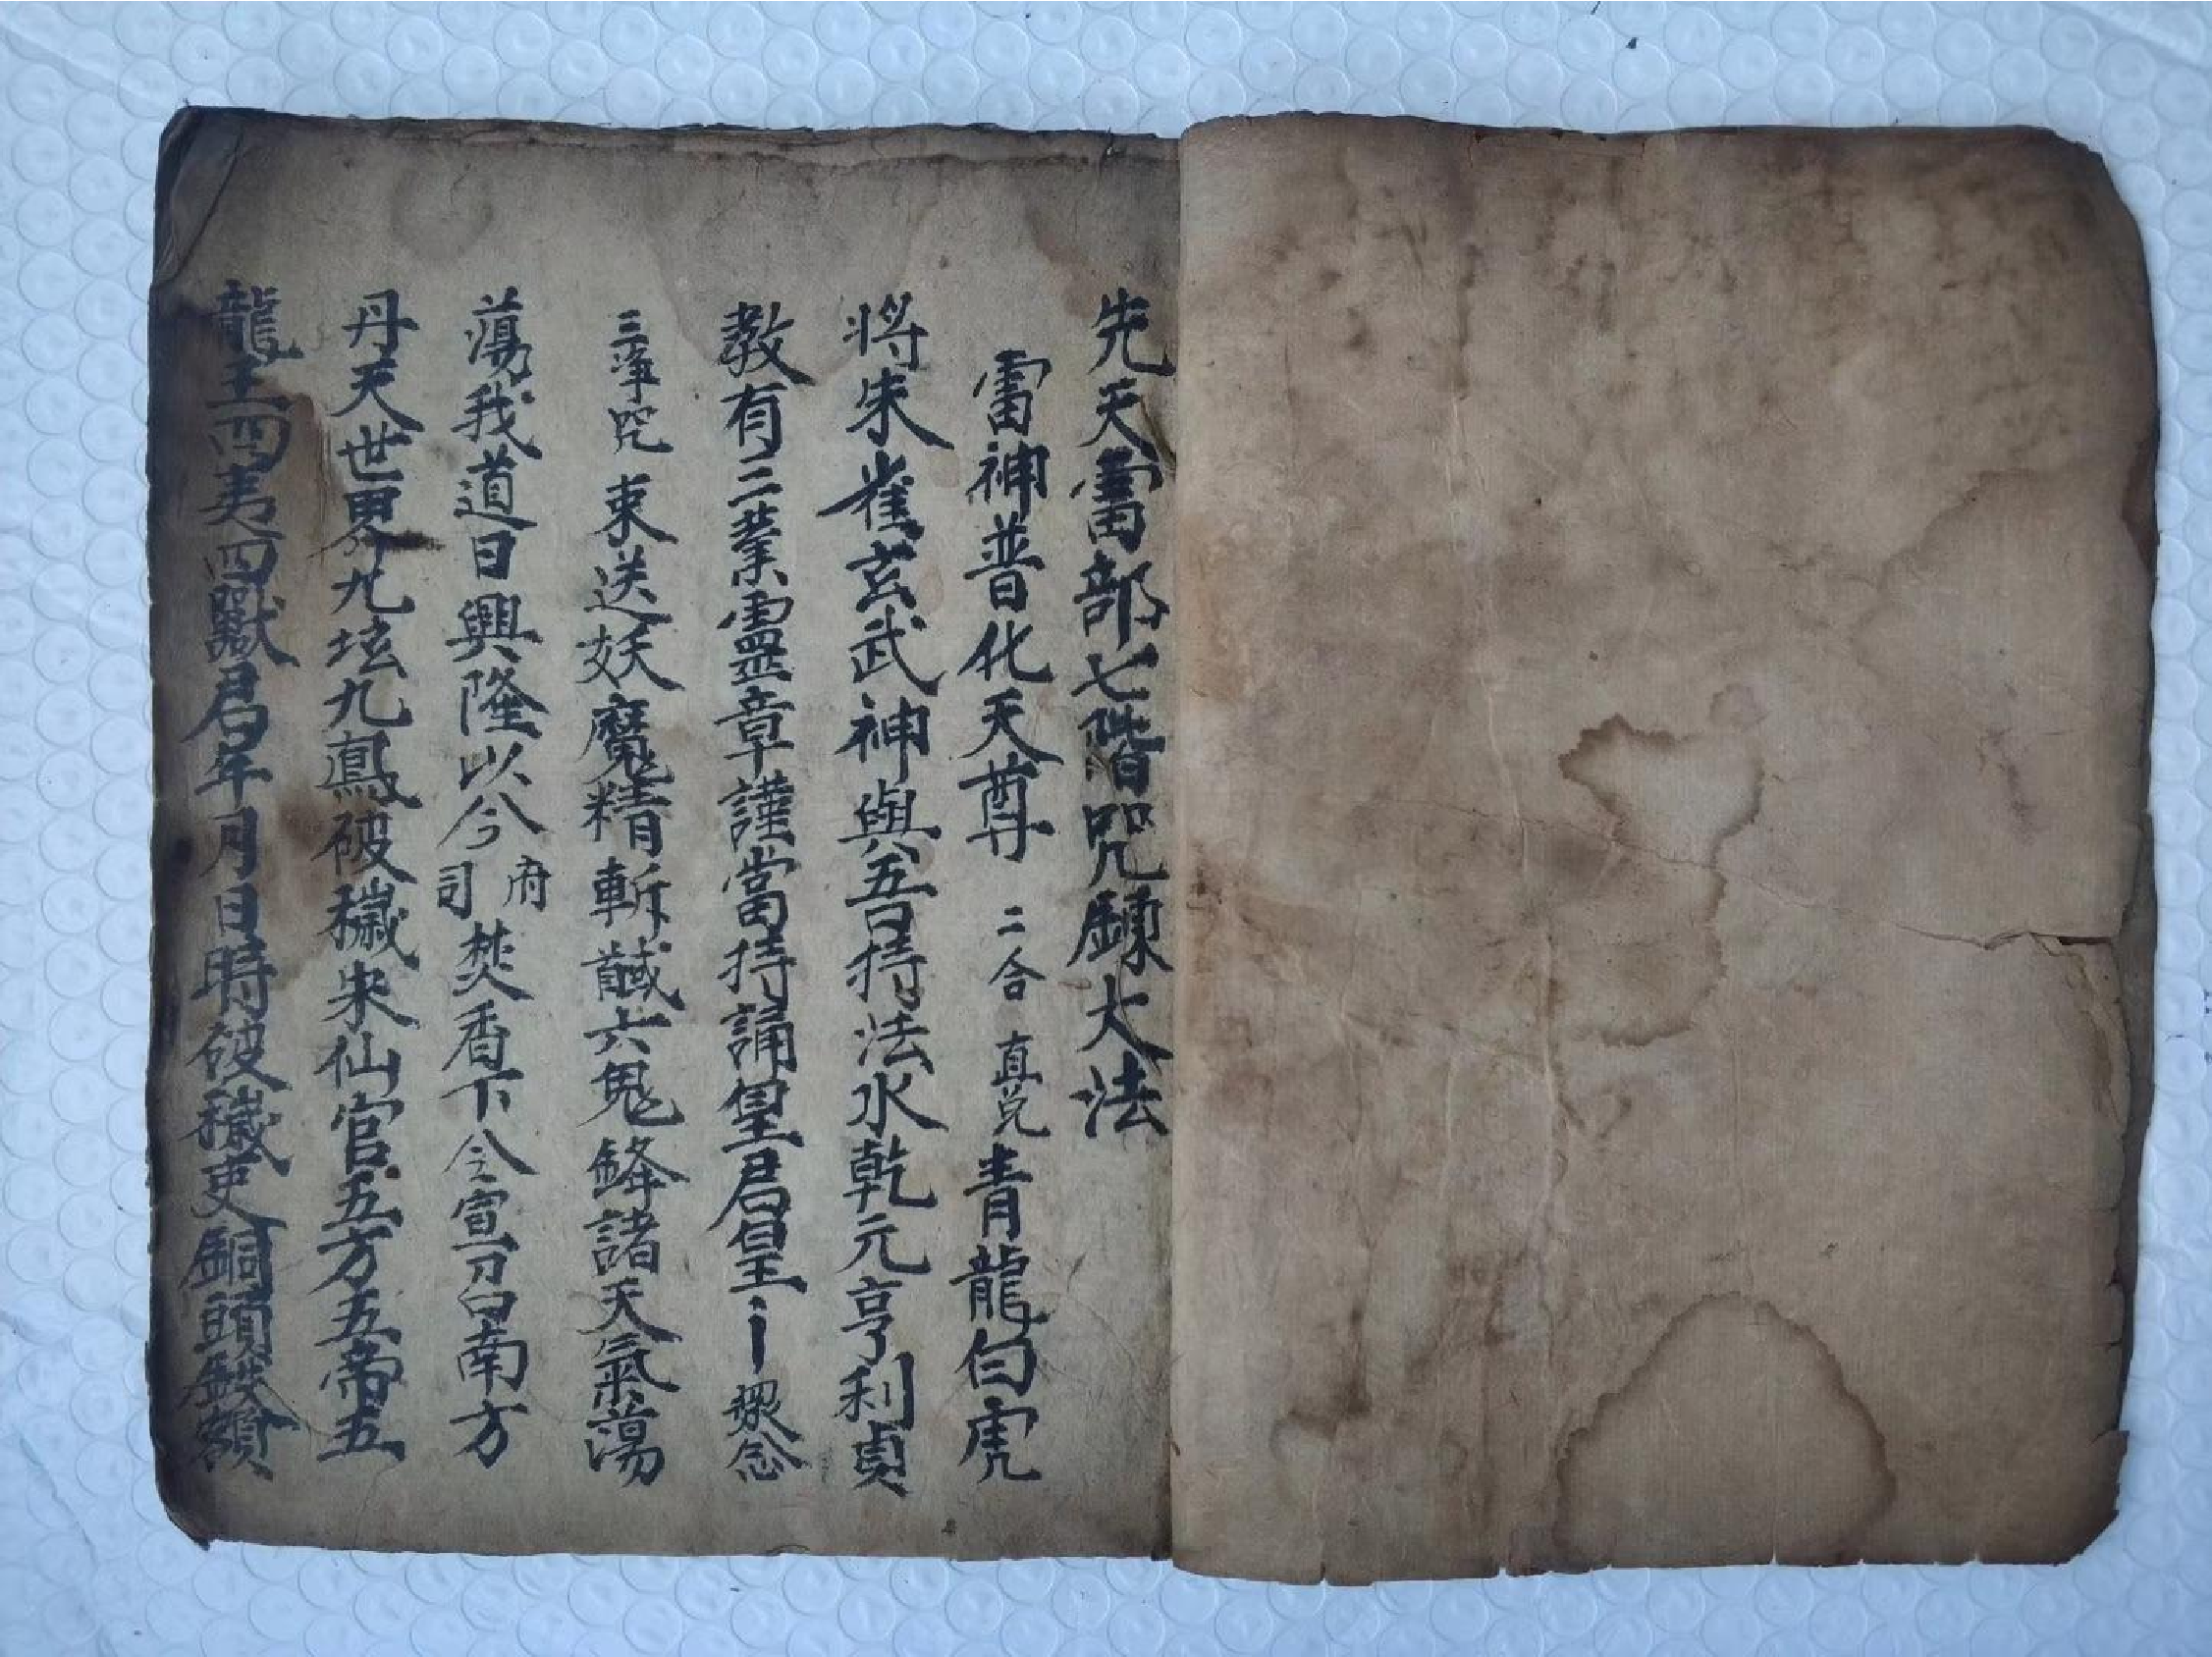 先天雷部七階咒鍊大法
雷神普化天尊 二合 直兑 青龍白虎
將朱雀玄武神與吾持法水乾元亨利貞
教有三業靈章謹當持誦皇君皇 念
三净咒 束送妖魔精斬馘六鬼鋒諸天氣蕩
蕩我道日興隆以今 府司 焚香下令宣 白南方
丹天世界九坛九鳳破穢宋仙官五方五帝五
龍王四夷四獄君年月日時破穢吏銅頭鉄額